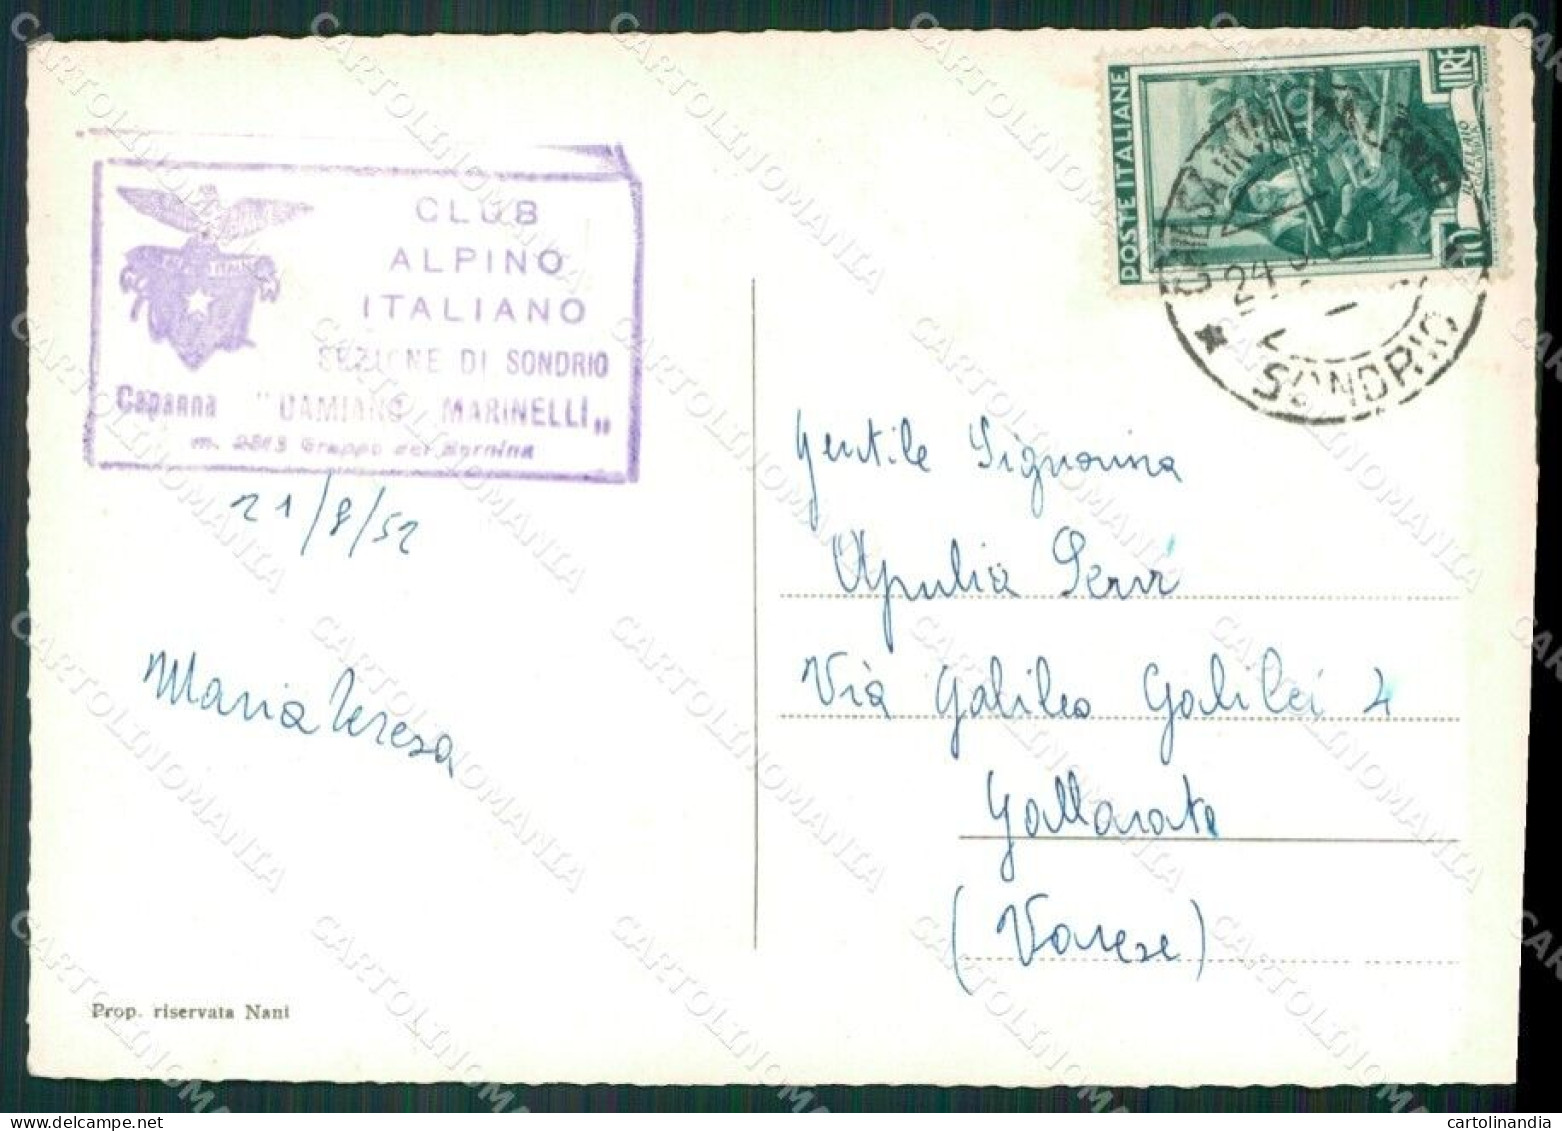 CLUB
ALPINO
ITALIANO
SEZIONE DI SONDRIO
Capanna "DAMIANO MARINELLI"
m. 2813 Gruppo del Bernina
21/8/52
Maria Teresa
Prop. riservata Nani
POSTE ITALIANE
LIRE 10
CHIESA IN VALMALENCO
24
SONDRIO
Gentile Signorina
Apulia Servi
Via Galileo Galilei 4
Gallarate
(Varese)
CARTOLINOMANIA
cartolinandia